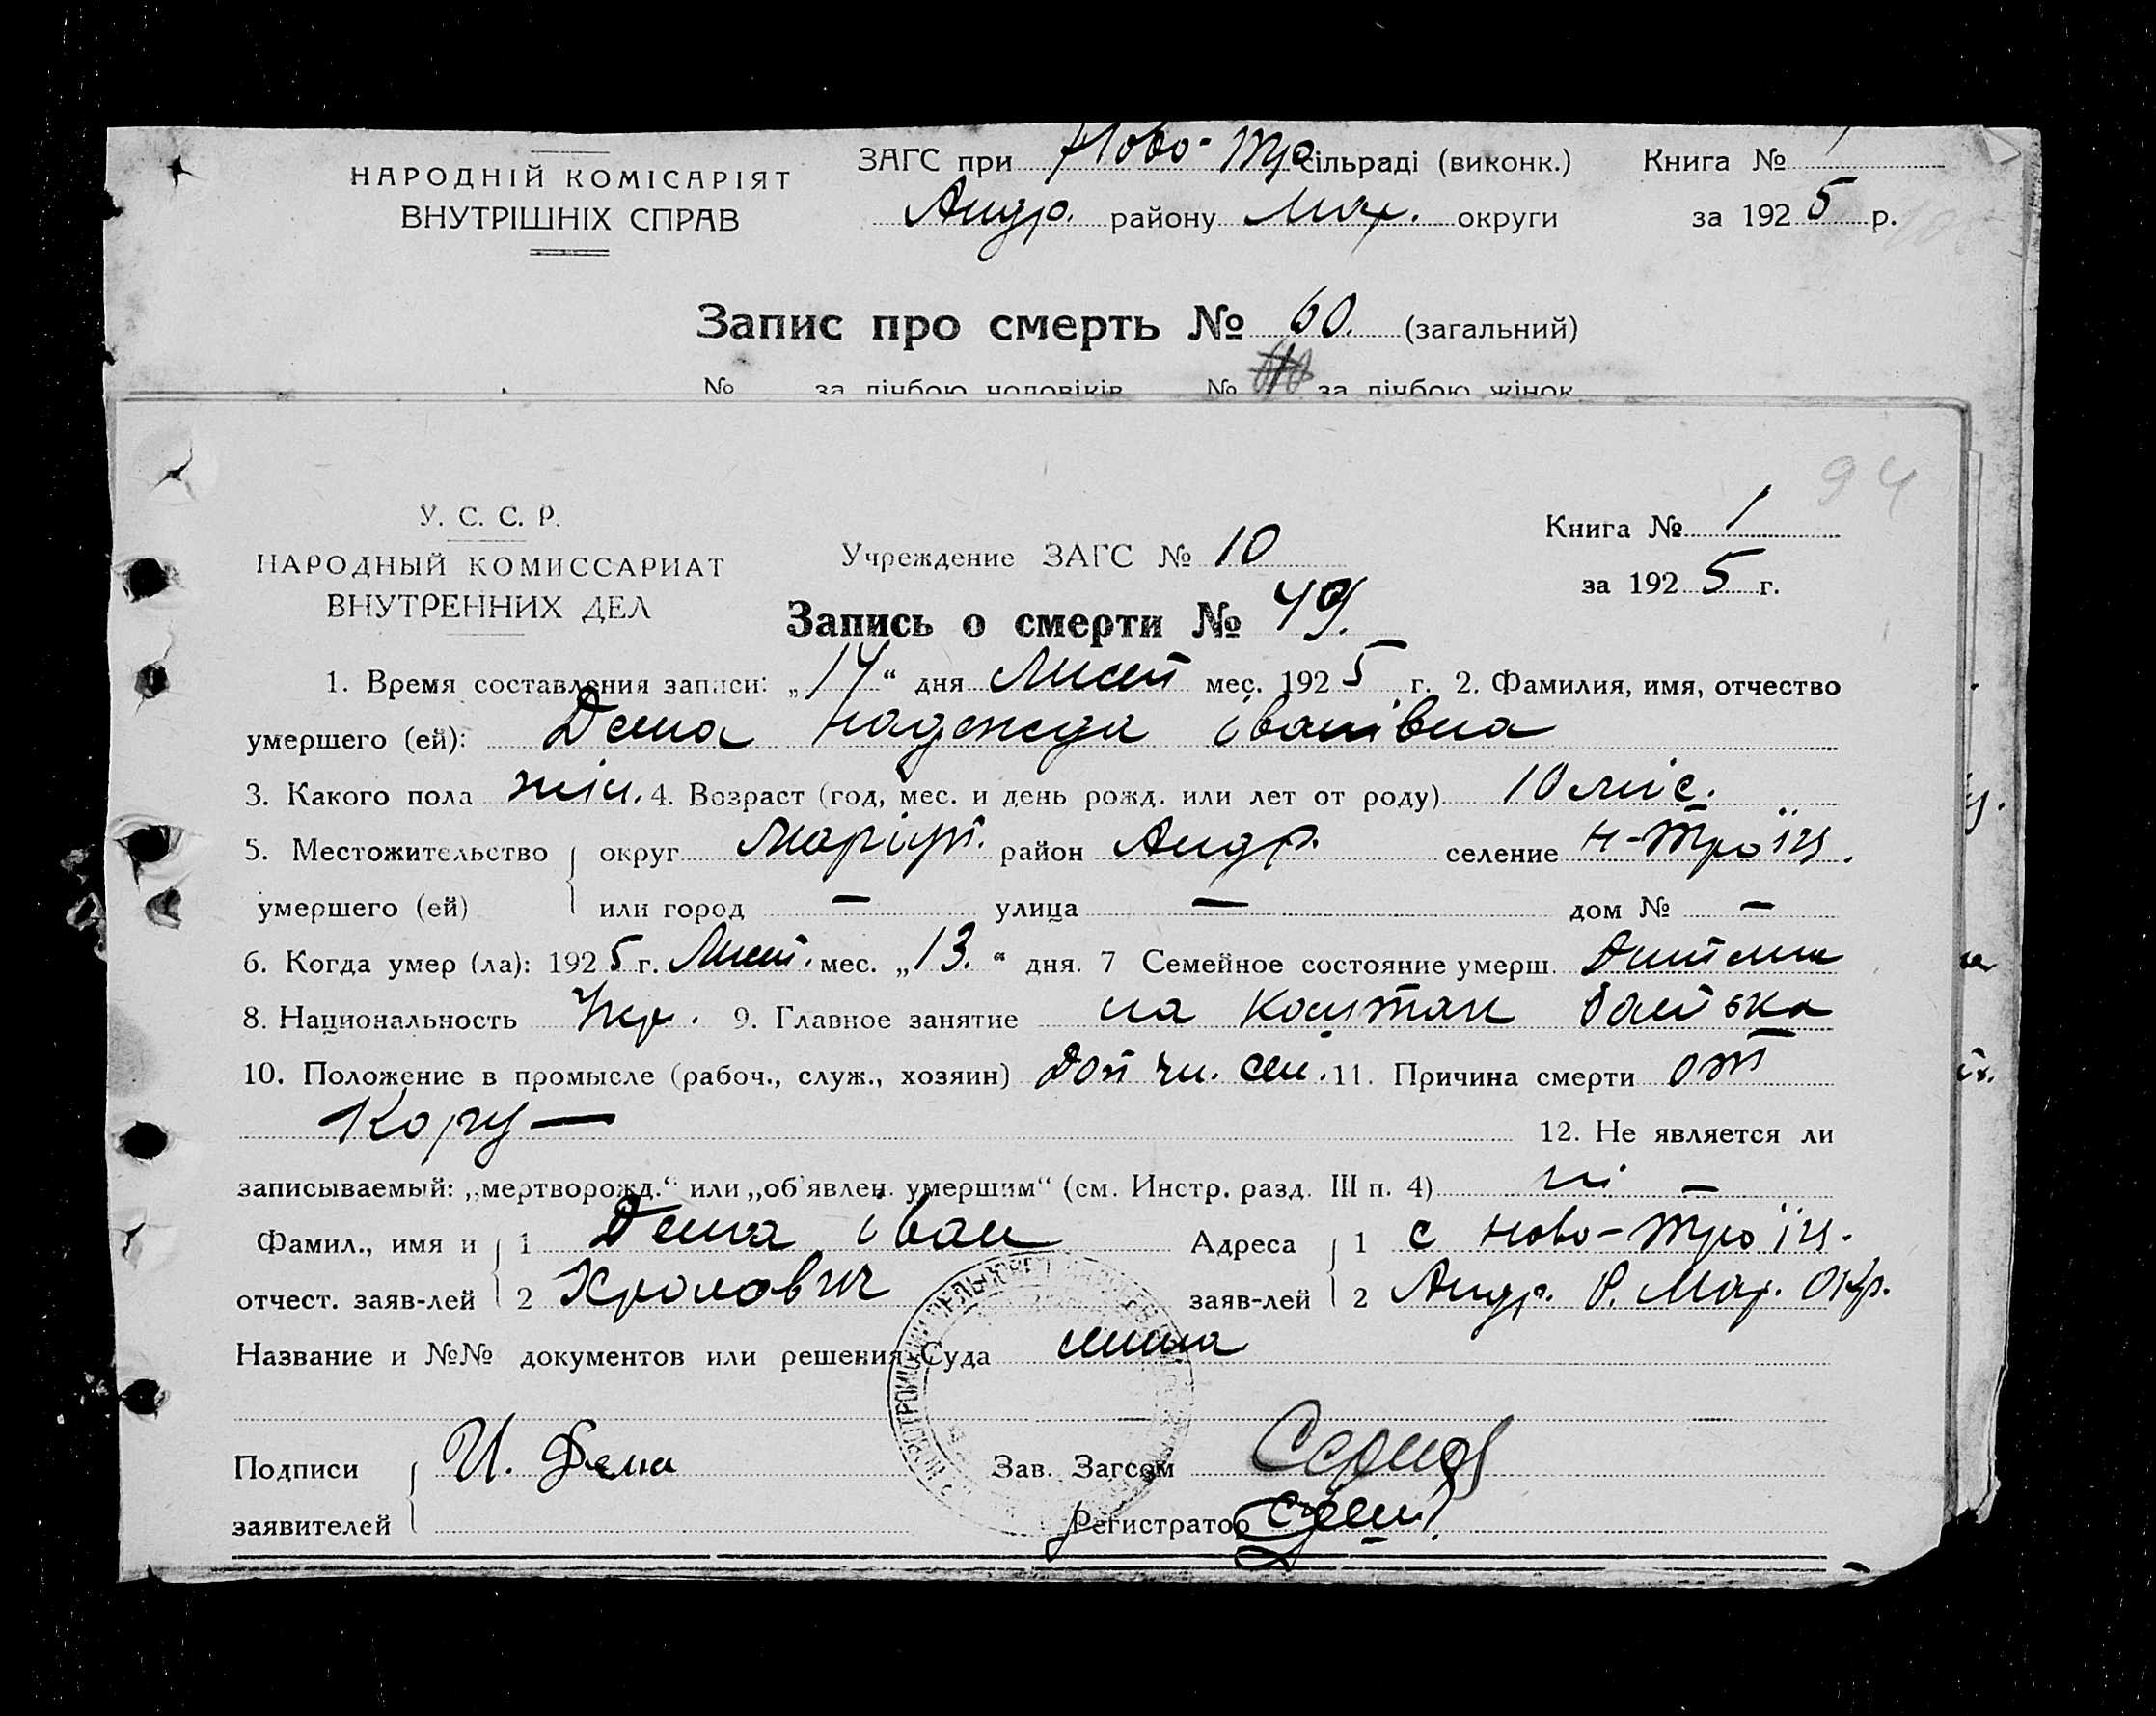 НАРОДНІЙ КОМІСАРІЯТ
ВНУТРІШНІХ СПРАВ
ЗАГС при Ново-Тро сільраді (виконк.)
Андр. району Мар. округи
Книга №
за 1925 р.
Запис про смерть № 60. (загальний)
№ за лічбою чоловіків № за лічбою жінок
94
У. С. С. Р.
НАРОДНЫЙ КОМИССАРИАТ
ВНУТРЕННИХ ДЕЛ
Учреждение ЗАГС № 10
Книга № 1
за 1925 г.
Запись о смерти № 49.
1. Время составления записи: „14“ дня Лист мес. 1925 г. 2. Фамилия, имя, отчество
умершего (ей): Дема Надежда Іванівна
3. Какого пола жін. 4. Возраст (год, мес. и день рожд. или лет от роду) 10 міс.
5. Местожительство округ Маріуп. район Андр. селение Н-Троїц.
умершего (ей) или город — улица — дом № —
6. Когда умер (ла): 1925 г. Лист. мес. „13.“ дня. 7 Семейное состояние умерш. Дитина
8. Национальность Укр. 9. Главное занятие на коштах батька
10. Положение в промысле (рабоч., служ., хозяин) Доп чл. сем. 11. Причина смерти от
Кору —
12. Не является ли
записываемый: „мертворожд.“ или „об'явлен. умершим“ (см. Инстр. разд. III п. 4) ні —
Фамил., имя и 1 Дема Іван Адреса 1 с Ново-Троїц.
отчест. заяв-лей 2 заяв-лей 2 Андр. Р. Мар. Окр.
Название и №№ документов или решения Суда
Подписи И. Дема Зав. Загсом
заявителей Регистратор